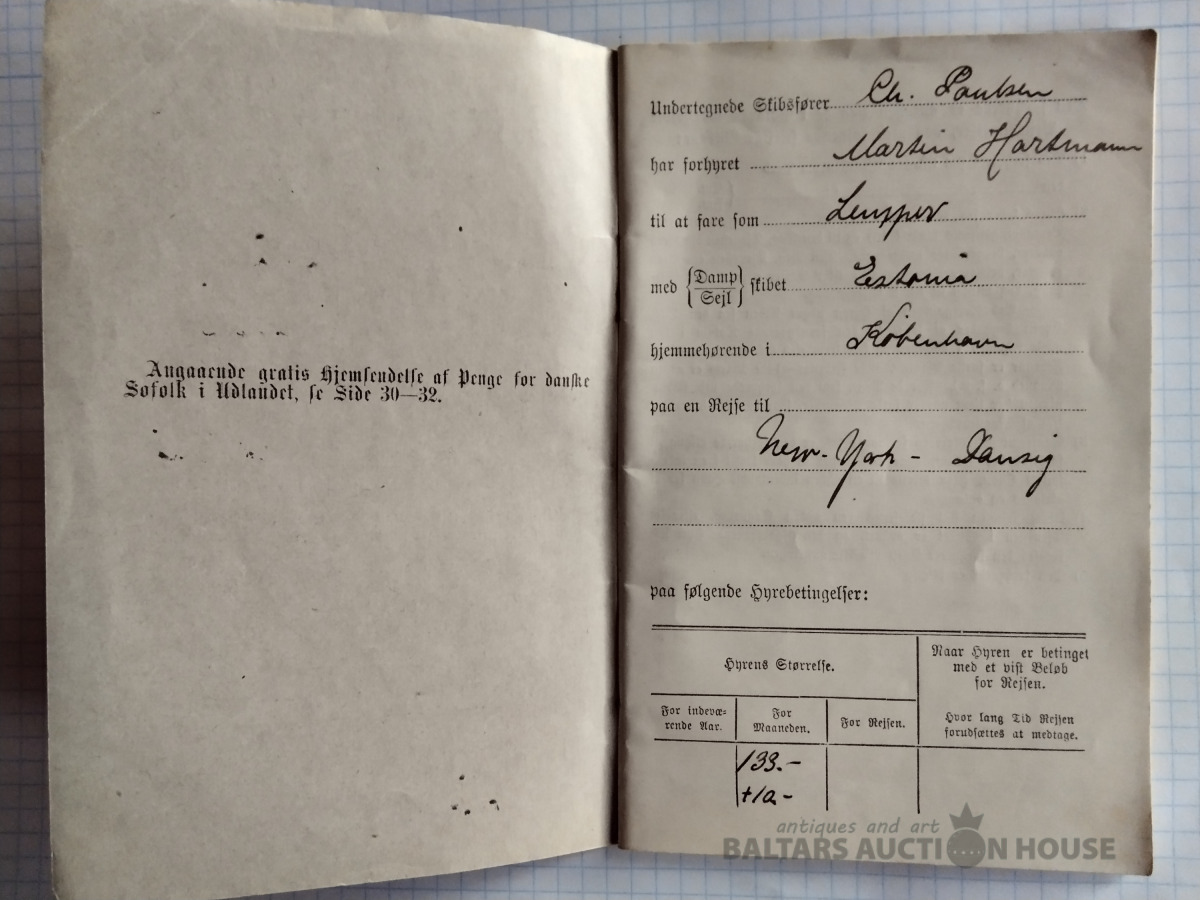 Angaaende gratis Hjemsendelse af Penge for danske
Søfolk i Udlandet, se Side 30—32.
Undertegnede Skibsfører Ch. Paulsen
har forhyret Martin Hartmann
til at fare som Lemper
med {Damp/Sejl} skibet Estonia
hjemmehørende i København
paa en Rejse til
New-York - Danzig
paa følgende Hyrebetingelser:
Hyrens Størrelse.
Naar Hyren er betinget
med et vist Beløb
for Rejsen.
For indevæ-
rende Aar.
For
Maaneden.
For Rejsen.
Hvor lang Tid Rejsen
forudsættes at medtage.
133.-
+10-
antiques and art
BALTARS AUCTION HOUSE